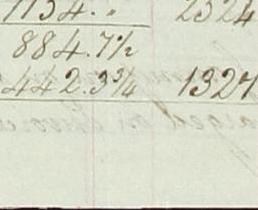 1134.〃 2324
884.7½
442.3¾ 1327